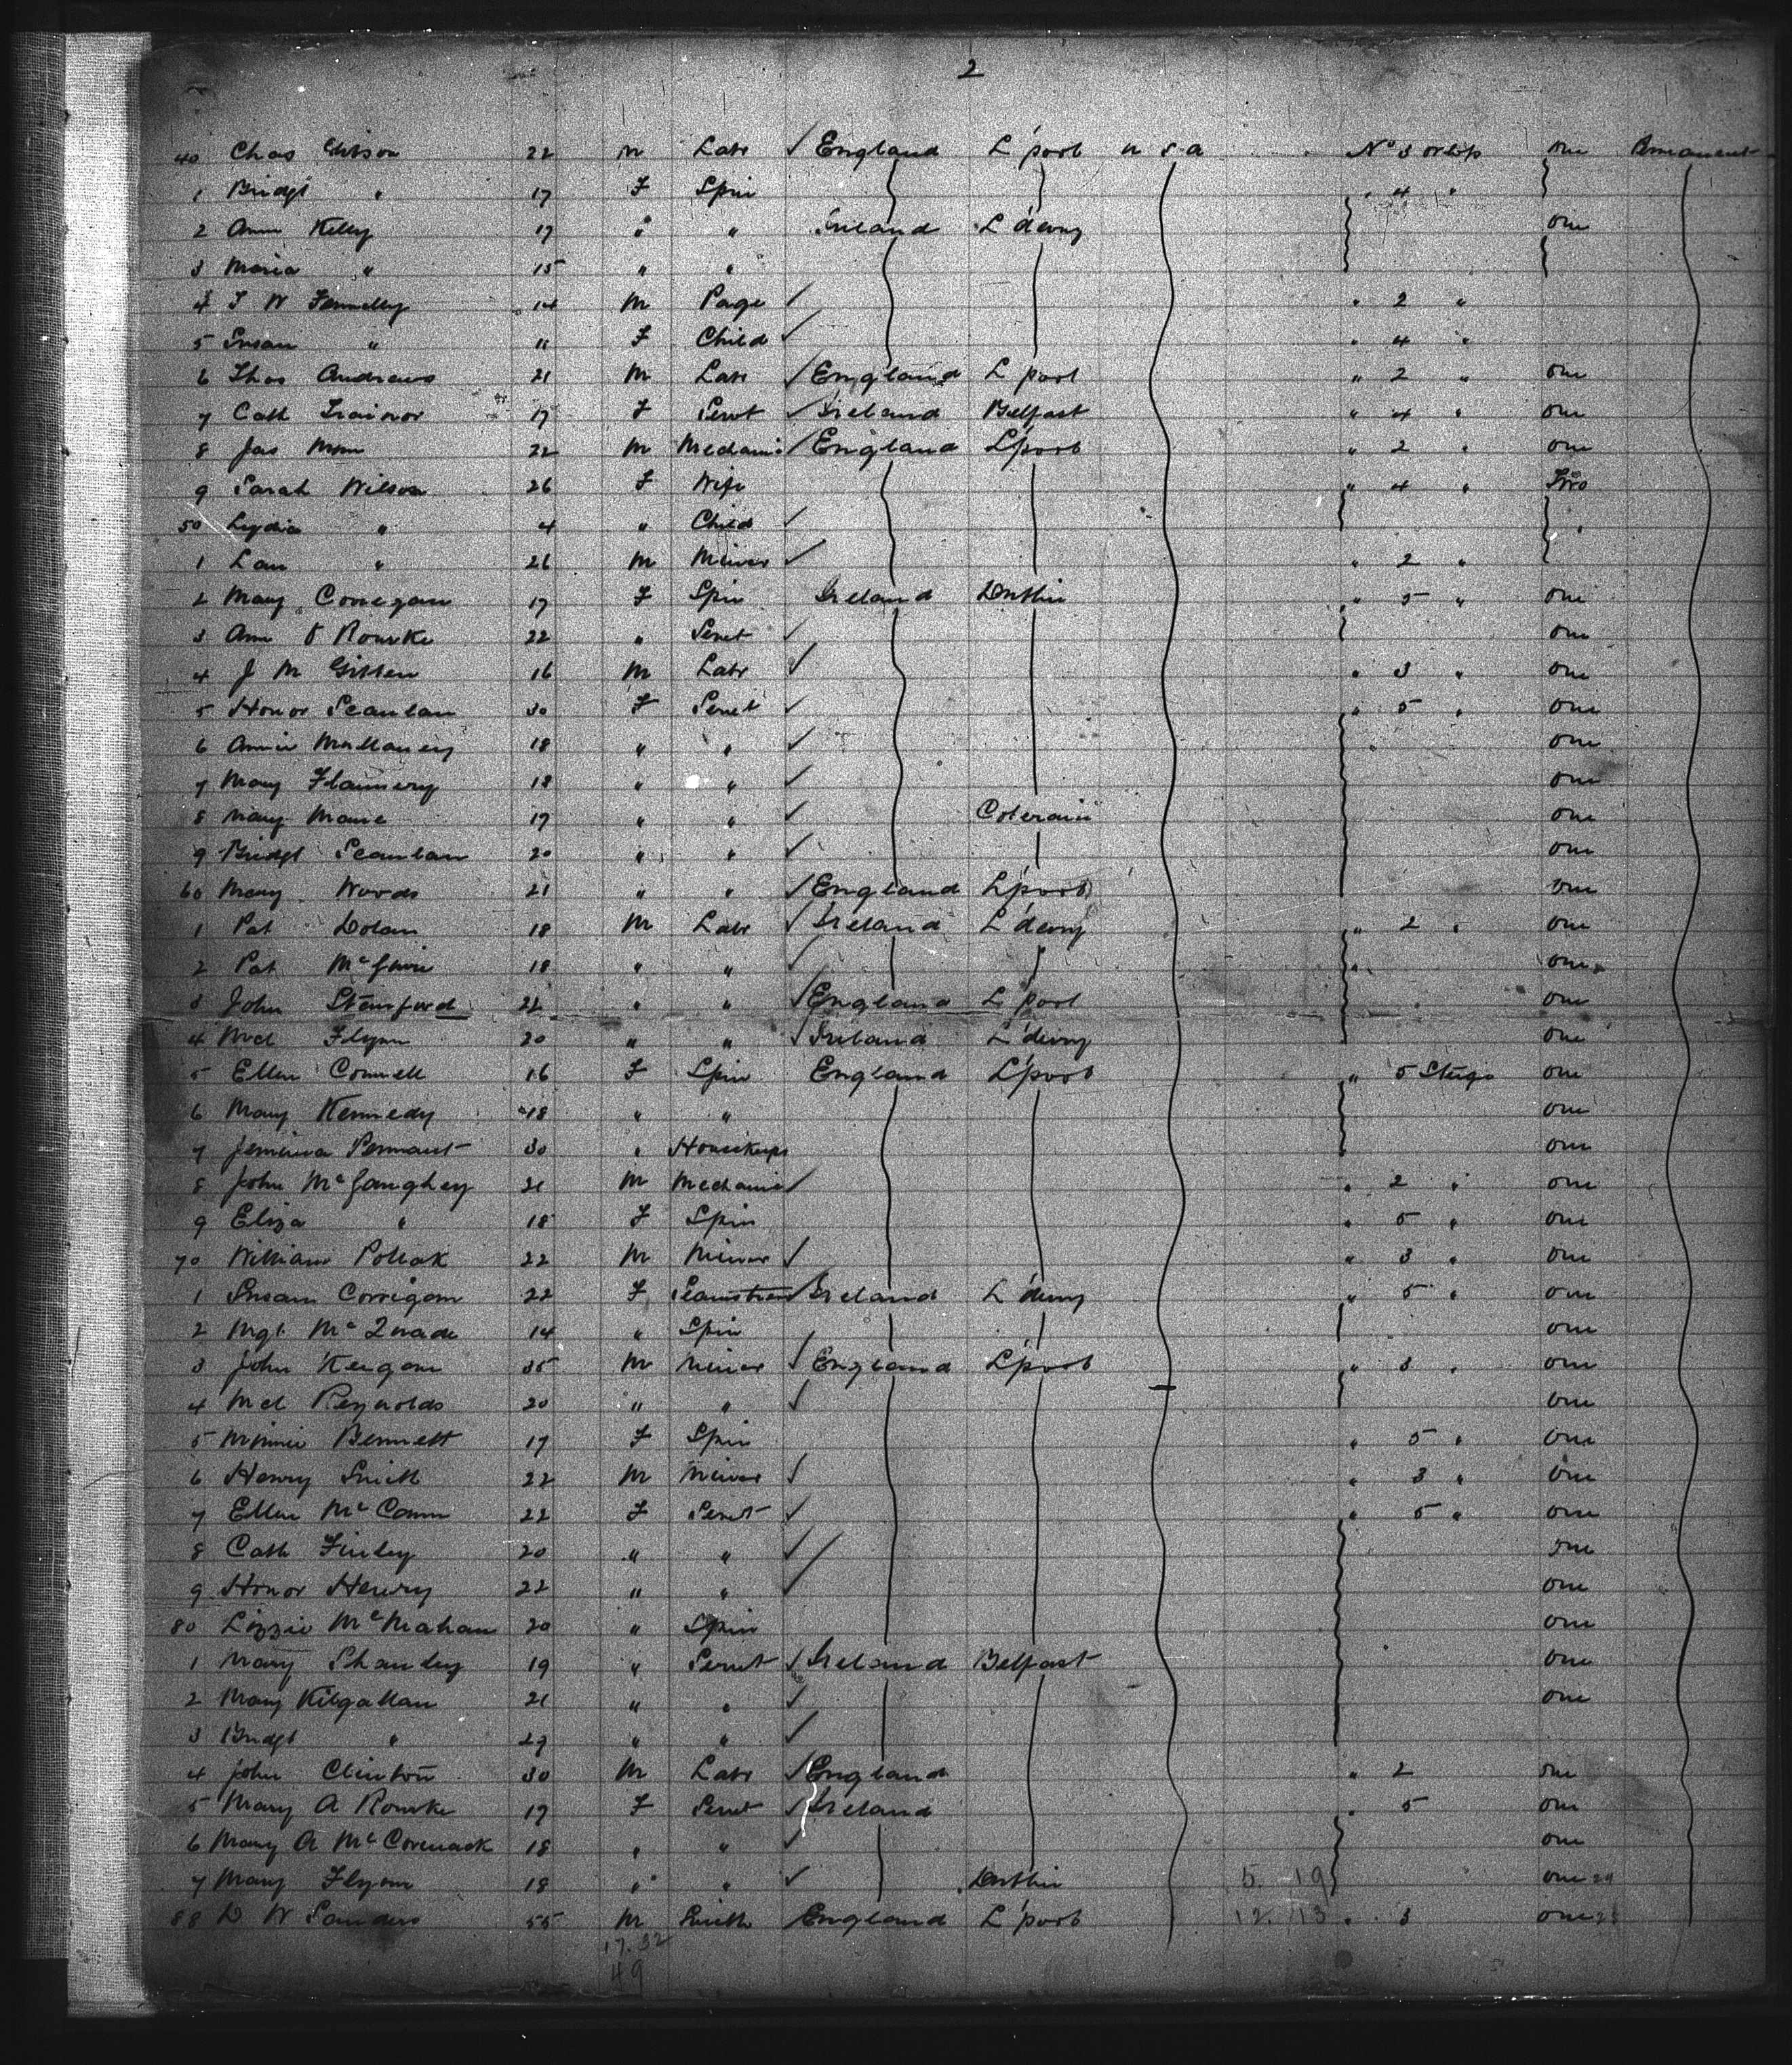 2
40 Chas Gibson 22 M Labr ✓ England L'pool U S A No 3 orlop one Permanent
1 Bridgt " 17 F Spin " 4 "
2 Ann Kelly 17 " " Ireland L'derry one
3 Maria " 15 " "
4 J W Fennelly 14 M Page ✓ " 2 "
5 Susan " 11 F Child ✓ " 4 "
6 Thos Andrews 21 M Labr ✓ England L'pool " 2 " one
7 Cath Trainor 17 F Servt ✓ Ireland Belfast " 4 " one
8 Jas 22 M Mechanic ✓ England L'pool " 2 " one
9 Sarah Wilson 26 F Wife " 4 " Two
50 Lydia " 4 " Child ✓
1 " 26 M Miner ✓ " 2 "
2 Mary Corregan 17 F Spin Ireland Dublin " 5 " one
3 Ann O Rourke 22 " Servt ✓ one
4 J M 16 M Labr ✓ " 3 " one
5 Honor Scanlan 30 F Servt ✓ " 5 " one
6 Annie Mullaney 18 " " ✓ one
7 Mary Flannery 18 " " ✓ one
8 Mary 17 " " ✓ Colerain one
9 Bridgt Scanlan 20 " " ✓ one
60 Mary Woods 21 " " ✓ England L'pool one
1 Pat Dolan 18 M Labr ✓ Ireland L'derry " 2 " one
2 Pat 18 " " ✓ " one
3 John Stamford 22 " " ✓ England L'pool one
4 Mcl Flynn 20 " " ✓ Ireland L'derry one
5 Ellen Connell 16 F Spin England L'pool " 5 Stege one
6 Mary Kennedy 18 " " one
7 Jemima 30 " Housekeepr one
8 John McGaughey 21 M Mechanic ✓ " 2 " one
9 Eliza " 18 F Spin " 5 " one
70 William Pollak 22 M Miner ✓ " 3 " one
1 Susan Corrigan 22 F Seamstress ✓ Ireland L'derry " 5 " one
2 Mgt McQuade 14 " Spin one
3 John Keegan 35 M Miner ✓ England L'pool " 3 " one
4 Mcl Reynolds 20 " " ✓ one
5 Minnie Bennett 17 F Spin " 5 " one
6 Henry Smith 22 M Miner ✓ " 3 " one
7 Ellen McCann 22 F Servt ✓ " 5 " one
8 Cath Finley 20 " " ✓ one
9 Honor Henry 22 " " ✓ one
80 Lizzie McMahan 20 " Spin one
1 Mary Shanley 19 " Servt ✓ Ireland Belfast one
2 Mary Kilgallan 21 " " ✓ one
3 Bridgt " 29 " " ✓
4 John Clinton 30 M Labr ✓ England " 2 one
5 Mary A Rourke 17 F Servt ✓ Ireland " 5 one
6 Mary A McCormack 18 " " ✓ one
7 Mary Flynn 18 " " ✓ Dublin 5. 19 one
88 D W Sanders 55 M Smith ✓ England L'pool 12. 13 " 3 one
17.32
49